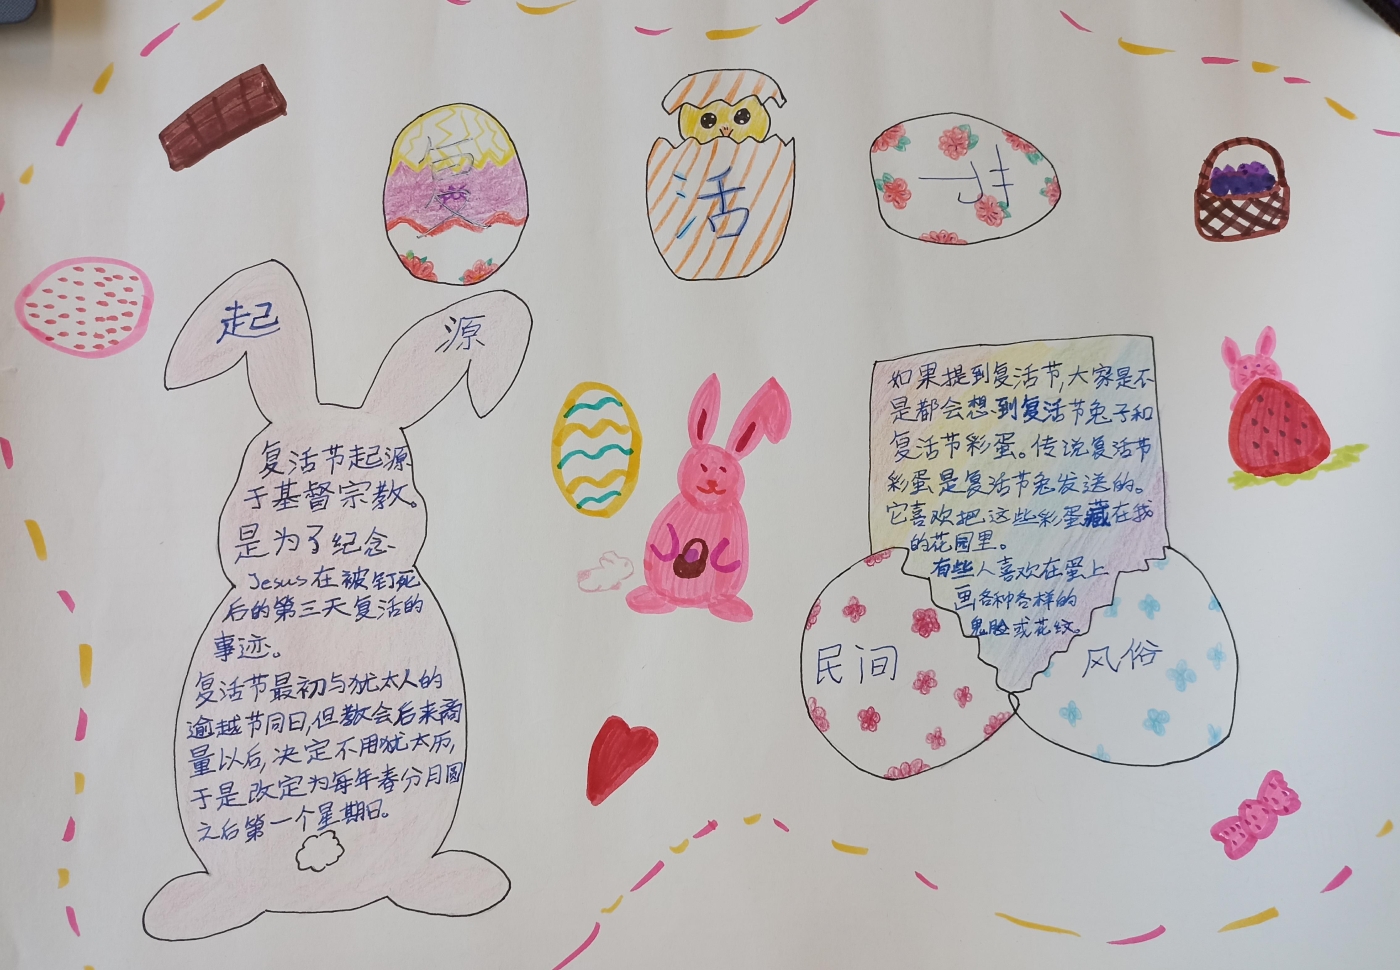 复
活
节
起
源
复活节起源
于基督宗教。
是为了纪念
Jesus在被钉死
后的第三天复活的
事迹。
复活节最初与犹太人的
逾越节同日,但教会后来商
量以后,决定不用犹太历,
于是改定为每年春分月圆
之后第一个星期日。
如果提到复活节,大家是不
是都会想到复活节兔子和
复活节彩蛋。传说复活节
彩蛋是复活节兔发送的。
它喜欢把这些彩蛋藏在我
的花园里。
有些人喜欢在蛋上
画各种各样的
鬼脸或花纹。
民间
风俗